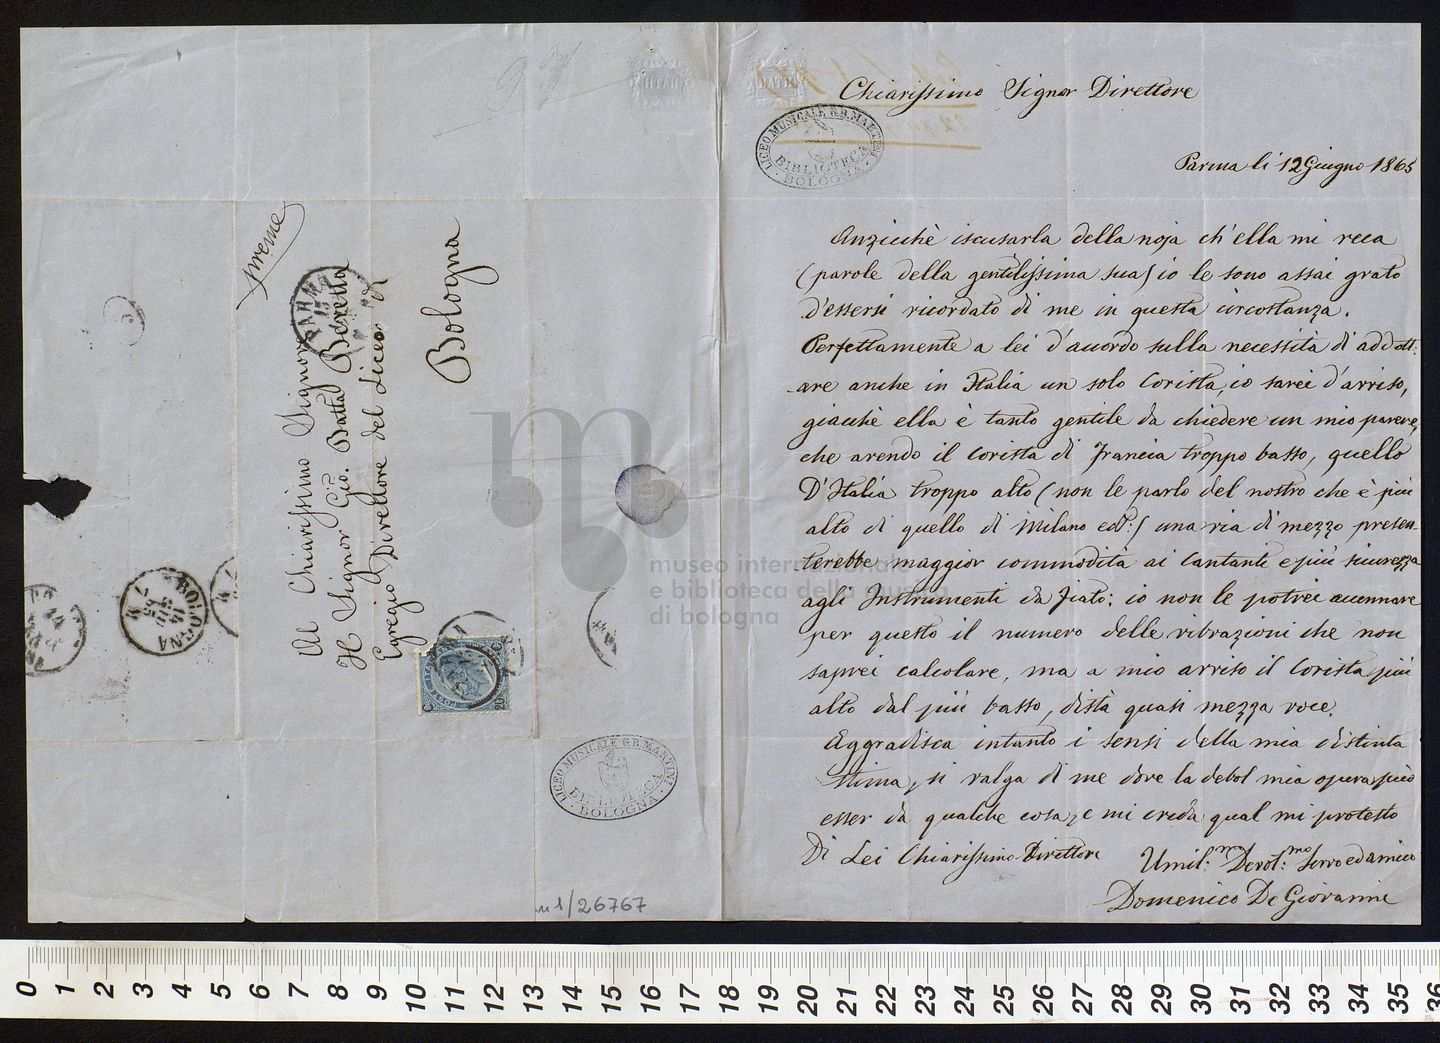 Chiarissimo Signor Direttore
Parma li 12 Giugno 1865
Anzicchè iscusarla della noja ch'ella mi reca
(parole della gentilissima sua) io le sono assai grato
d'essersi ricordato di me in questa circostanza.
Perfettamente a lei d'accordo sulla necessità di addott-
are anche in Italia un solo Corista, io sarei d'avviso,
giacchè ella è tanto gentile da chiedere un mio parere,
che avendo il Corista di Francia troppo basso, quello
D'Italia troppo alto (non le parlo del nostro che è più
alto di quello di Milano ecc:) una via di mezzo presen-
terebbe maggior commodità ai Cantanti e più sicurezza
agli Instrumenti da fiato: io non le potrei accennare
per questo il numero delle vibrazioni che non
saprei calcolare, ma a mio avviso il Corista più
alto dal più basso, distà quasi mezza voce.
Aggradisca intanto i sensi della mia distinta
stima, si valga di me dove la debol mia opera può
esser da qualche cosa, e mi creda qual mi protesto
Di Lei Chiarissimo Direttore
Umil:mo Devot:mo Servo ed amico
Domenico De Giovanni
LICEO MUSICALE G.B. MARTINI
BIBLIOTECA
BOLOGNA
preme
Al Chiarissimo Signore
Il Signor Gio. Batta Beretta
Egregio Direttore del Liceo di
Bologna
PARMA
BOLOGNA
LICEO MUSICALE G.B. MARTINI
BIBLIOTECA
BOLOGNA
1/26767
museo internazionale
e biblioteca della musica
di bologna
0 1 2 3 4 5 6 7 8 9 10 11 12 13 14 15 16 17 18 19 20 21 22 23 24 25 26 27 28 29 30 31 32 33 34 35 36